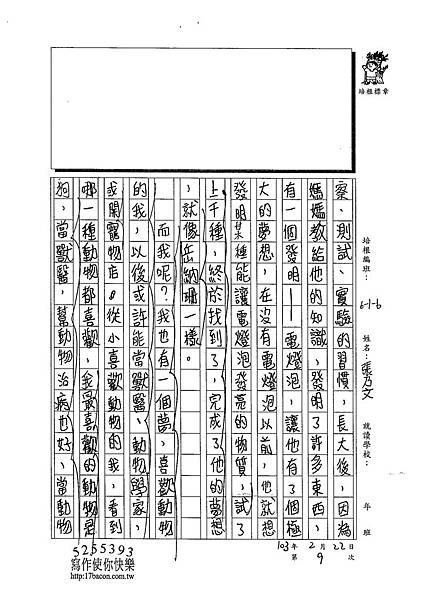 培根標章
察、測試、實驗的習慣，長大後，因為
媽媽教給他的知識，發明了許多東西，
有一個發明——電燈泡，讓他有了個極
大的夢想，在沒有電燈泡以前，他就想
發明某種能讓電燈泡發亮的物質，試了
上千種，終於找到了，完成了他的夢想
，就像岳納珊一樣。
而我呢？我也有一個夢，喜歡動物
的我，以後或許能當獸醫、動物學家，
或開寵物店。從小喜歡動物的我，看到
哪一種動物都喜歡，我最喜歡的動物是
狗，當獸醫，幫動物治病也好，當動物
培根編班：6-1-6
姓名：張乃文
就讀學校：
年 班
103年2月22日
第9次
5255393
寫作使你快樂
http://17bacon.com.tw